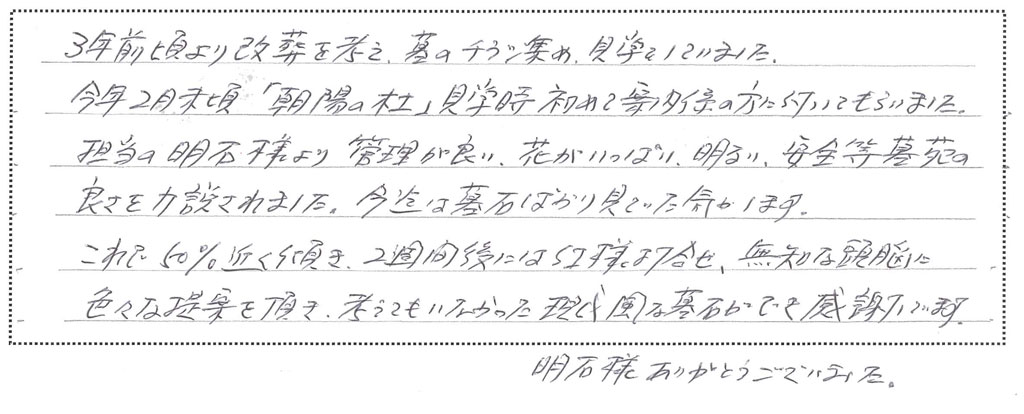 3年前頃より改葬を考え、墓のチラシ集め、見学をしていました。
今年2月末頃「朝陽の杜」見学時初めて案内係の方に付いてもらいました。
担当の明石様より管理が良い、花がいっぱい、明るい、安全等墓苑の
良さを力説されました。今迄は墓石ばかり見ていた気がします。
これで50%近く傾き、2週間後には 様 合せ、無知な頭脳に
色々な提案を頂き、考えてもいなかった現代風な墓石ができ感謝 です。
明石様ありがとうございました。